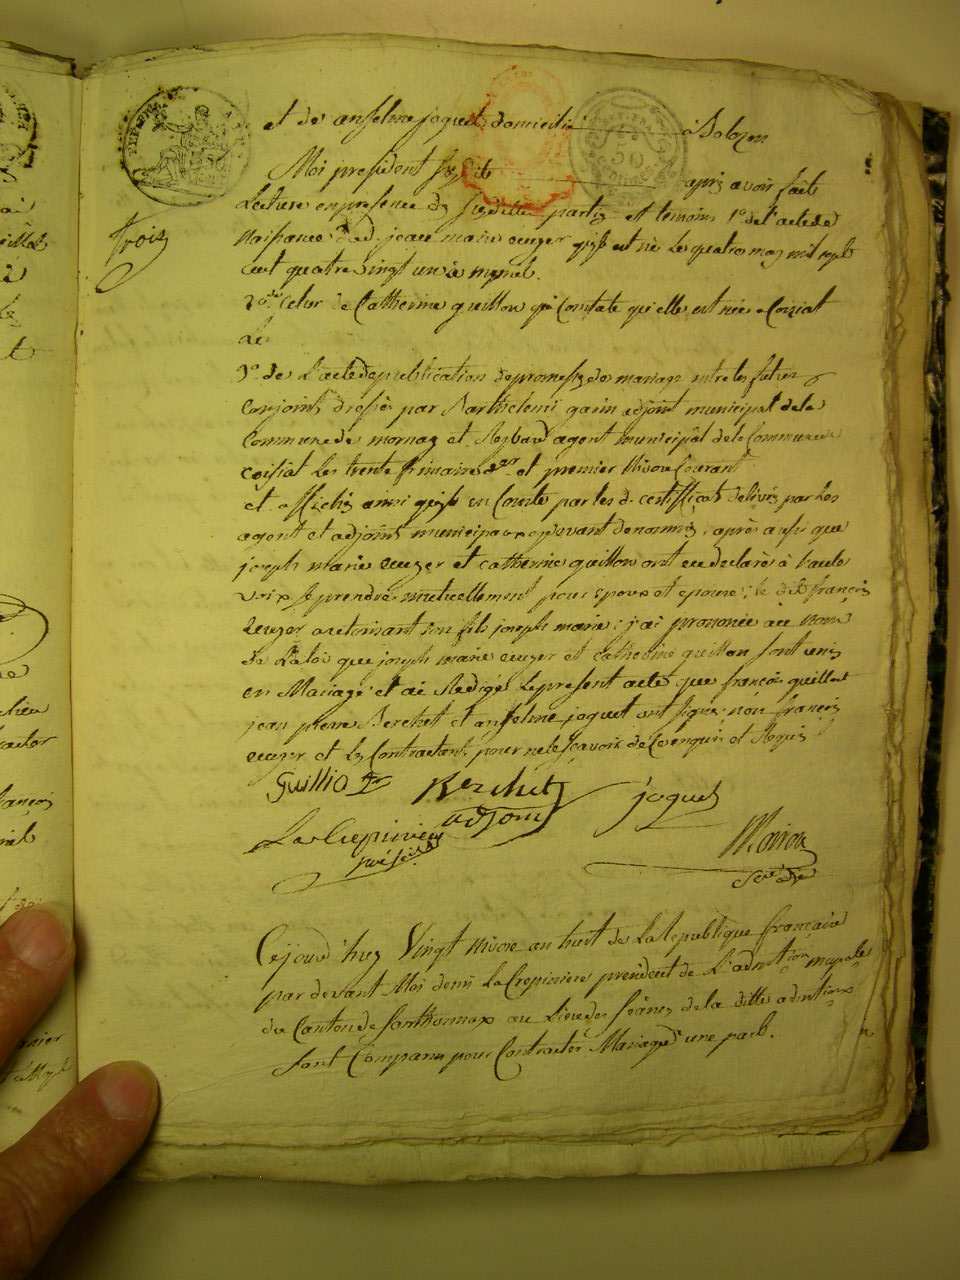 et de anselme joquet domicilié à Bolozon
Moi president susdit après avoir fait
Lecture en presence des susdittes parties et temoins 1° de l'acte de
Naissance dud. jean marie cuzer qu'il est né Les quatres may mil sept
cent quatre vingt un à mornet.
2° celui de Catherine guillon qui Constate qu'elle est née a Coiziat
Le
3° de L'acte de publication de promesses de mariage entre les futurs
conjoints dressés par Barthelemi garin adjoint municipal de la
Commune de mornay et Reybard agent municipal de la Commune de
coisiat Les trente frimaire der et premier Nivose Courant
et affichés ainsi qu'il en Conste par les d. certifficats delivrés par Les
agent et adjoint municipaux cydevant denommés, après aussi que
joseph marie cuzer et catherine guillon ont eu declaré à haute
voix se prendre mutuellement pour epoux et epouse; le dit françois
cuzer autorisant son fils joseph marie; j'ai prononcé au nom
de La loi que joseph marie cuzer et catherine guillon sont unis
en Mariage et ai Redigé Le present acte que françois guillon
jean pierre Berchet et anselme joquet ont signé; non françois
cuzer et Les Contractants pour ne le sçavoir de Ce enquis et Requis
Guillion Berchet joquet
adjoint
La Crepiniere
président
Moiroux
Secre
Trois
50
Cejourd'huy Vingt nivose an huit de La République française
pardevant Moi denis La Crepiniere president de L'admtion mupale
du Canton de Sonthonnax au Lieu des seances de la ditte admtion
sont Comparus pour Contracter Mariage d'une part.